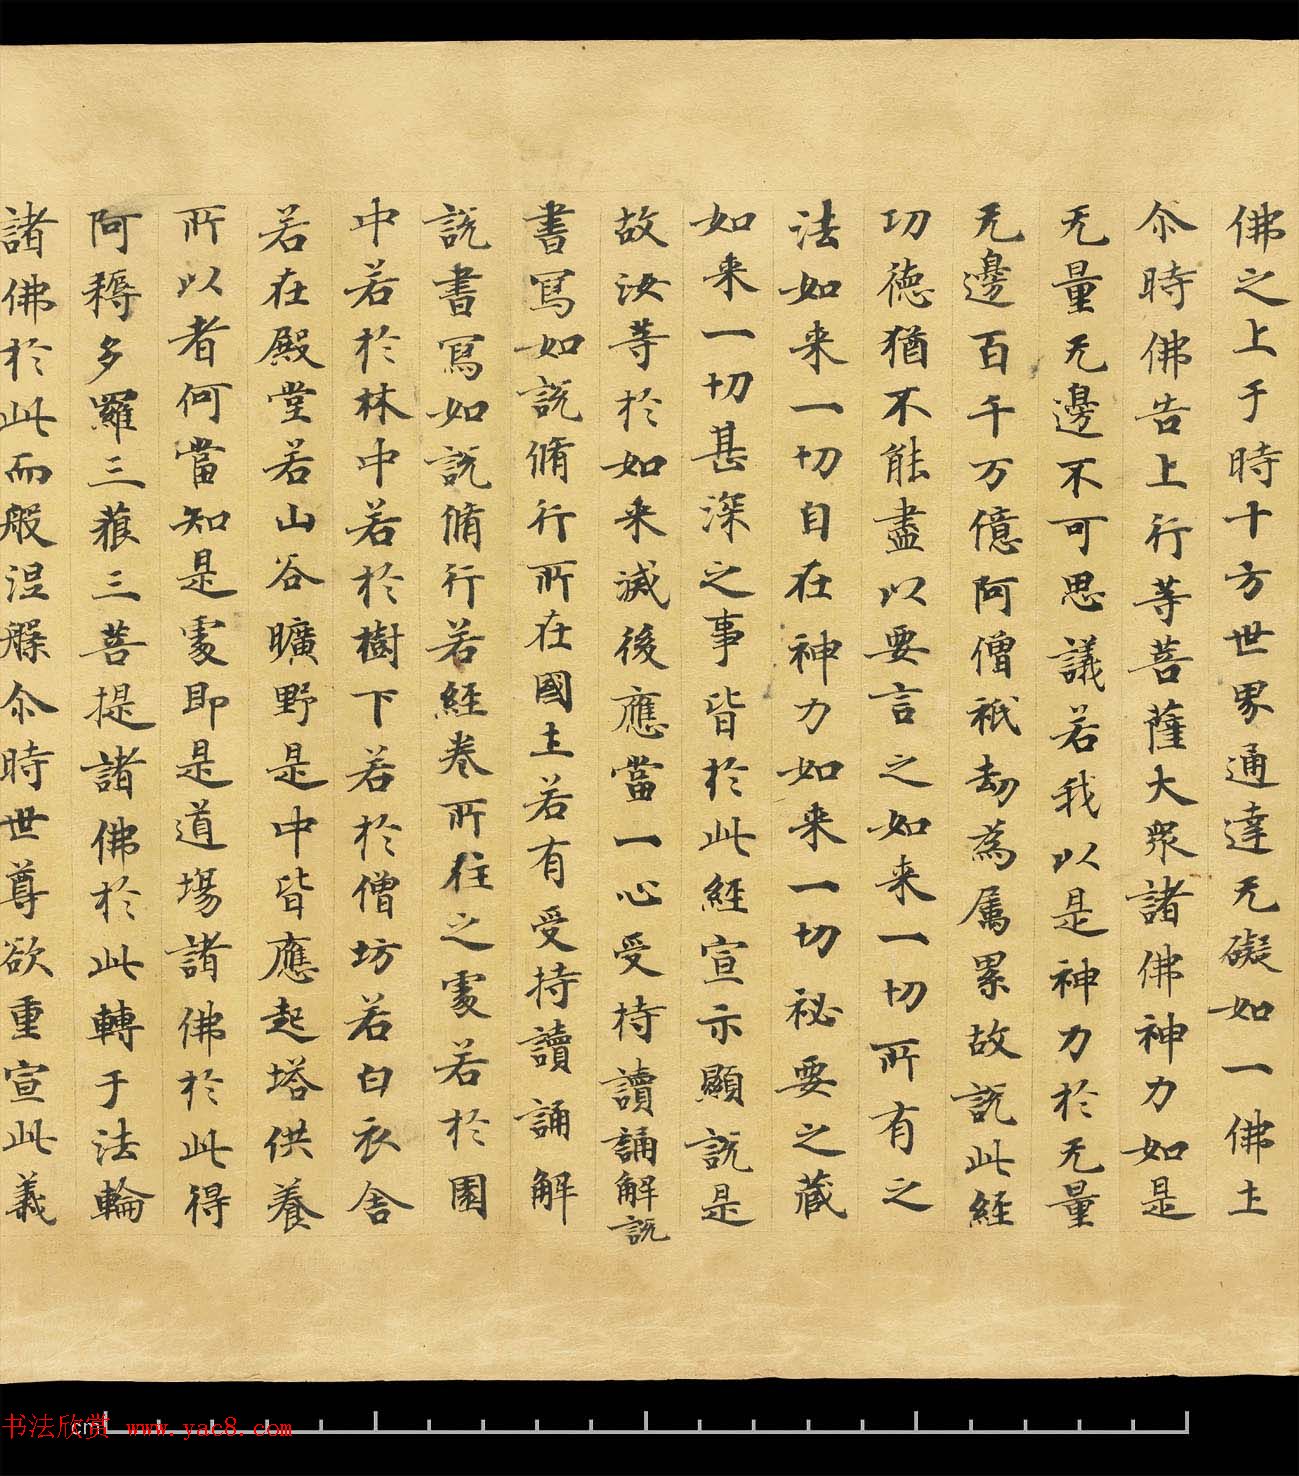 佛之上于時十方世界通達无礙如一佛土
尒時佛告上行等菩薩大衆諸佛神力如是
无量无邊不可思議若我以是神力於无量
无邊百千万億阿僧祇劫為属累故説此經
功徳猶不能盡以要言之如来一切所有之
法如来一切自在神力如来一切祕要之藏
如来一切甚深之事皆於此經宣示顯説是
故汝等於如来滅後應當一心受持讀誦解説
書寫如説脩行所在國土若有受持讀誦解
説書寫如説脩行若經卷所住之處若於園
中若於林中若於樹下若於僧坊若白衣舍
若在殿堂若山谷曠野是中皆應起塔供養
所以者何當知是處即是道場諸佛於此得
阿耨多羅三藐三菩提諸佛於此轉于法輪
諸佛於此而般涅槃尒時世尊欲重宣此義
cm
书法欣赏 www.yac8.com